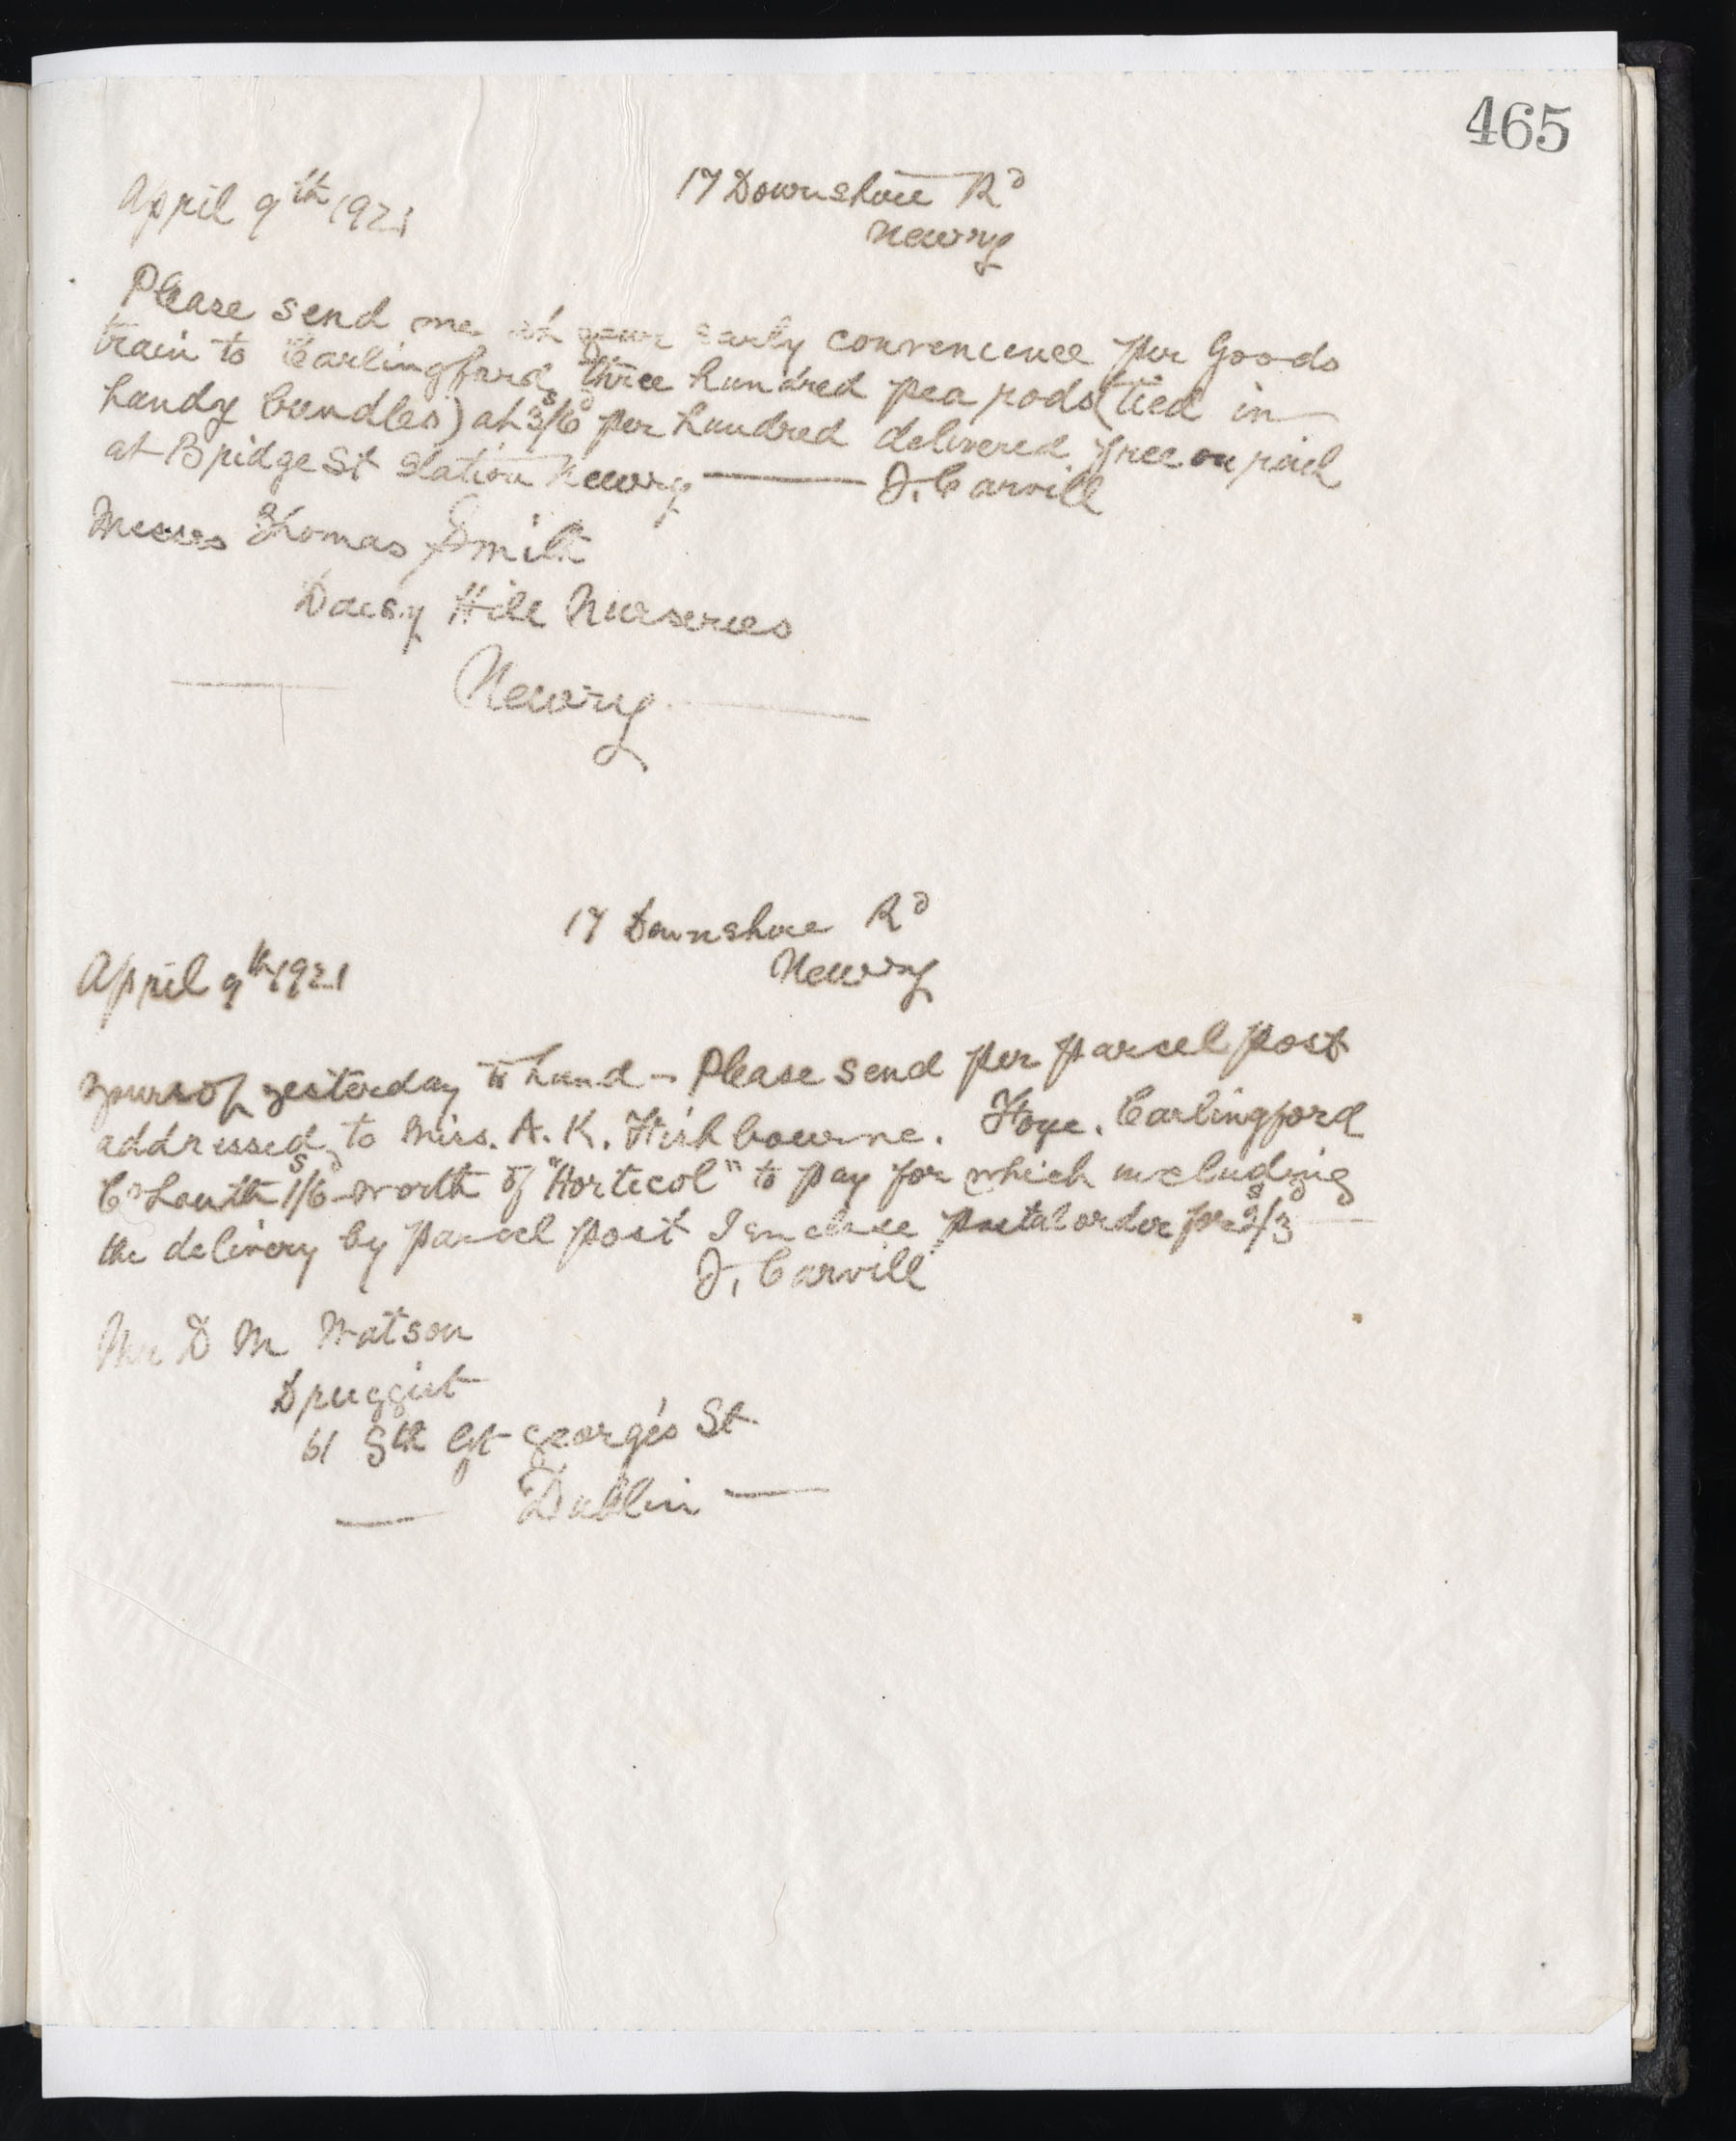 465
17 Downshire Rd
Newry
April 9th 1921
Please send me at your early convenience per Goods
train to Carlingford, three hundred pea rods (tied in
handy bundles) at 3s/6d per hundred delivered free on rail
at Bridge St Station Newry — J. Carvill
Messrs Thomas Smith
Daisy Hill Nurseries
Newry
17 Downshire Rd
Newry
April 9th 1921
Yours of yesterday to hand – Please send per parcel post
addressed to Miss. A. K. Fishbourne. Carlingford
Co Louth 1s/6d worth of "Horticol" to pay for which including
the delivery by parcel post I enclose postal order for 2s/3d
J. Carvill
Mr D M Watson
Druggist
61 Sth Gt George's St
— Dublin —